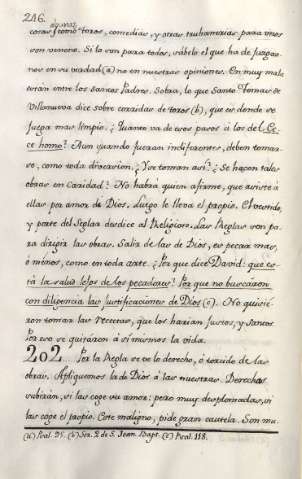 246.
algunos
cosas, como toros, comedias, y otras truhanerias para unos
son veneno. Si lo son para todos, sabelo el que ha de juzgar-
nos en su verdad (a) no en nuestras opiniones. En muy mala
estan entre los Santos Padres. Sobra, lo que Santo Tomas de
Villanueva dice sobre corridas de toros (b), que es donde se
juega mas limpio. ¿Quanto va de esos passos à los del Ec-
ce homo? Aun quando fueran indiferentes, deben tomar-
se, como toda diversion. ¿Y se toman asi? ¿Se hacen tales
obras en Caridad? No habra quien afirme, que asiste à
ellas por amor de Dios. Luego le lleva el propio. El vestido,
y parte del Seglar desdice al Religioso. Las Reglas son pa-
ra dirigir las obras. Salir de las de Dios, es pecar mas,
ò menos, como en toda arte. ¿Por que dice David: que es-
tà la salud lejos de los pecadores? Por que no buscaron
con diligencia las justificaciones de Dios (c). No quisie-
ron tomar las recetas, que los harian justos, y Santos
Por eso se quitaron à sí mismos la vida.
202. Por la Regla se ve lo derecho, ò torcido de las
obras. Apliquemos la de Dios à las nuestras. Derechas
subiran, si las coge su amor: pero muy desplomadas, si
las coge el propio. Este maligno, pide gran cautela. Son mu-
(a) Psal. 95. (b) Ser. 2 de S. Joan. Bapt. (c) Psal. 118.